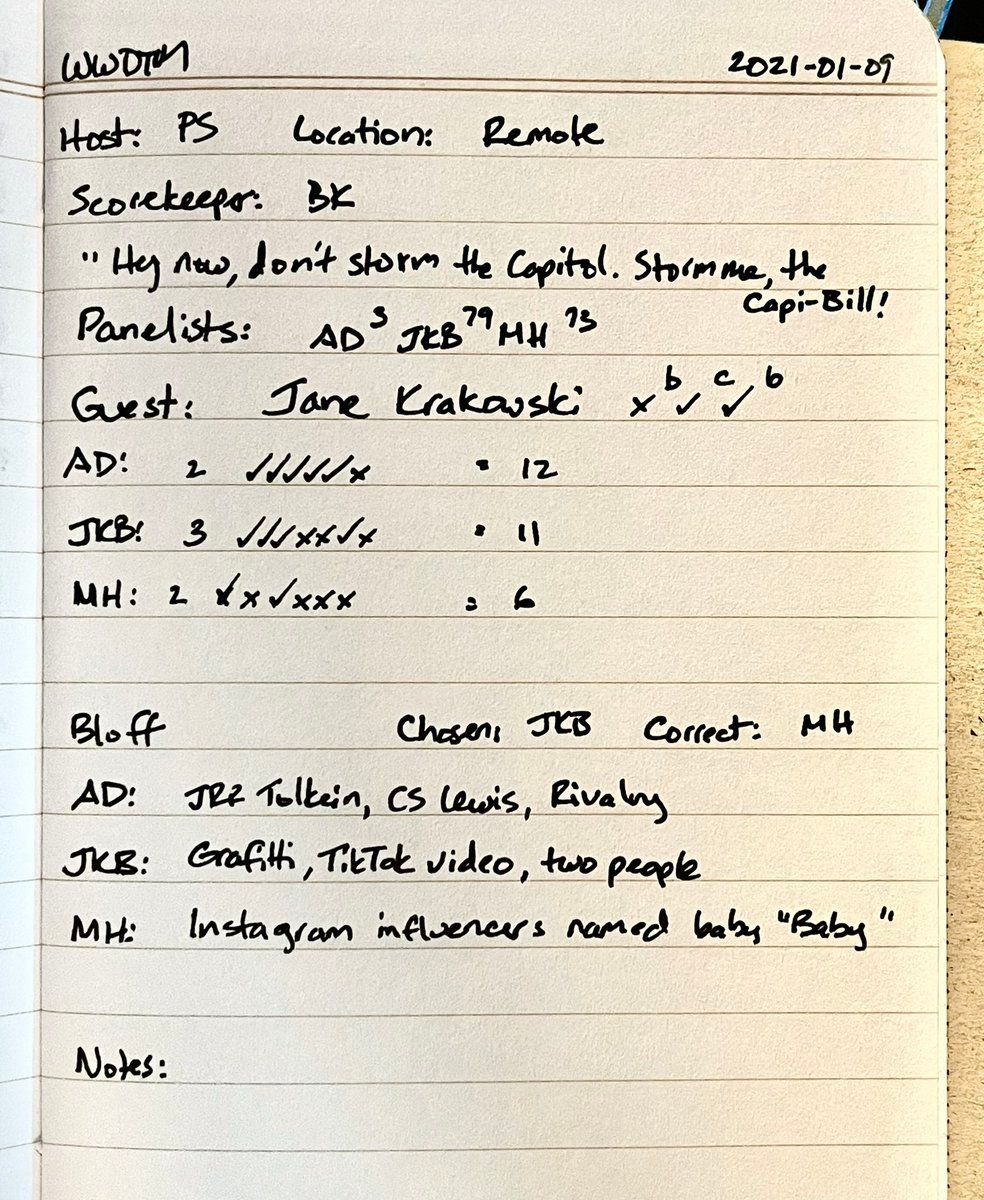 WWDTM 2021-01-09
Host: PS Location: Remote
Scorekeeper: BK
"Hey now, don't storm the Capitol. Storm me, the
Capi-Bill!
Panelists: AD 3 JKB 79 MH 73
Guest: Jane Krakowski x b ✓ c ✓ b
AD: 2 ✓✓✓✓✓x = 12
JKB: 3 ✓✓✓xx✓x = 11
MH: 2 ✓x✓xxx = 6
Bluff Chosen: JKB Correct: MH
AD: JRR Tolkein, CS Lewis, Rivalry
JKB: Grafitti, TikTok video, two people
MH: Instagram influencers named baby "Baby"
Notes: